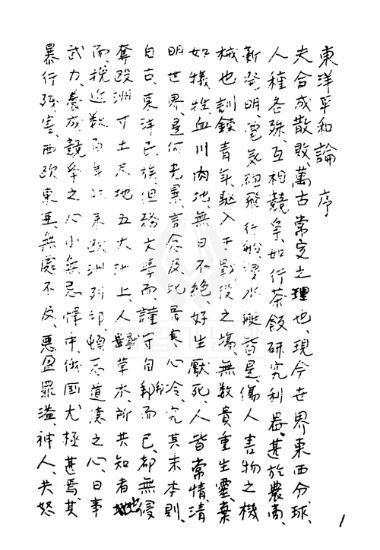 東洋平和論 序
夫合成散敗萬古常定之理也現今世界東西分球、
人種各殊、互相競爭、如行茶飯、研究利器、甚於農商、
新發明、電氣砲、飛行船、浸水艇、皆是傷人害物之機
械也、訓鍊青年、駈入于戰役之場、無數貴重生靈、棄
如犧牲、血川肉地、無日不絶、好生厭死、人皆常情、清
明世界、是何光景、言念及此、骨寒心冷、究其末本、則
自古、東洋民族、但務文學而、謹守自邦而已、都無侵
奪歐洲寸土尺地、五大洲上、人獸草木、所共知者也
而、挽近數百年以來、歐洲列邦、頓忘道德之心、日事
武力、養成競爭之心、小無忌憚、中俄國尤極甚焉、其
暴行殘害、西歐東亞、無處不及、惡盈罪溢、神人共怒
1